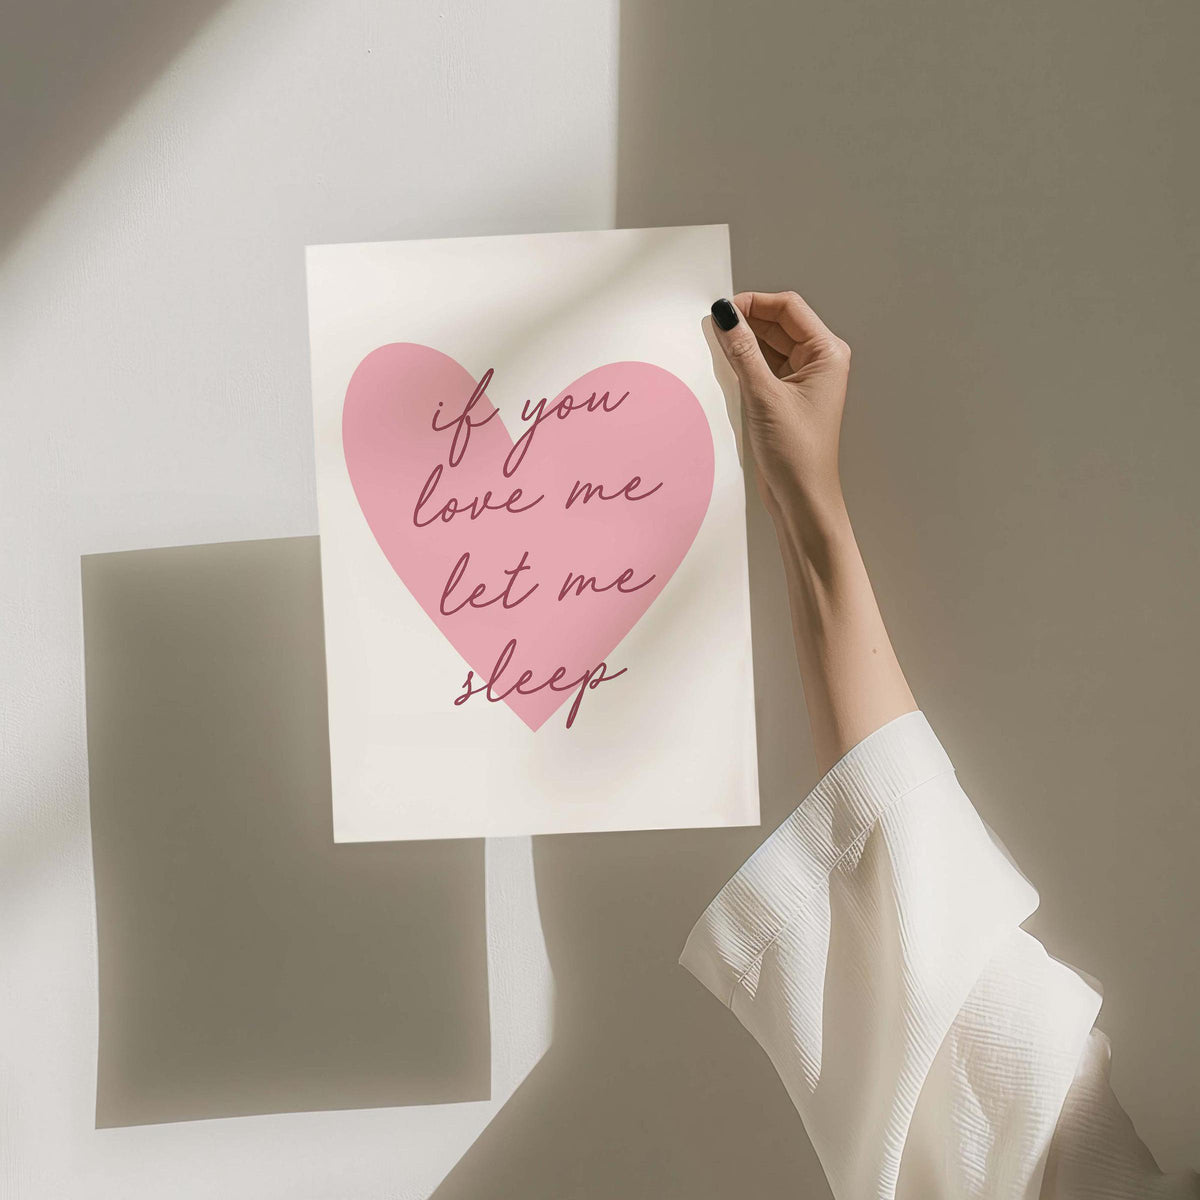 if you
love me
let me
sleep